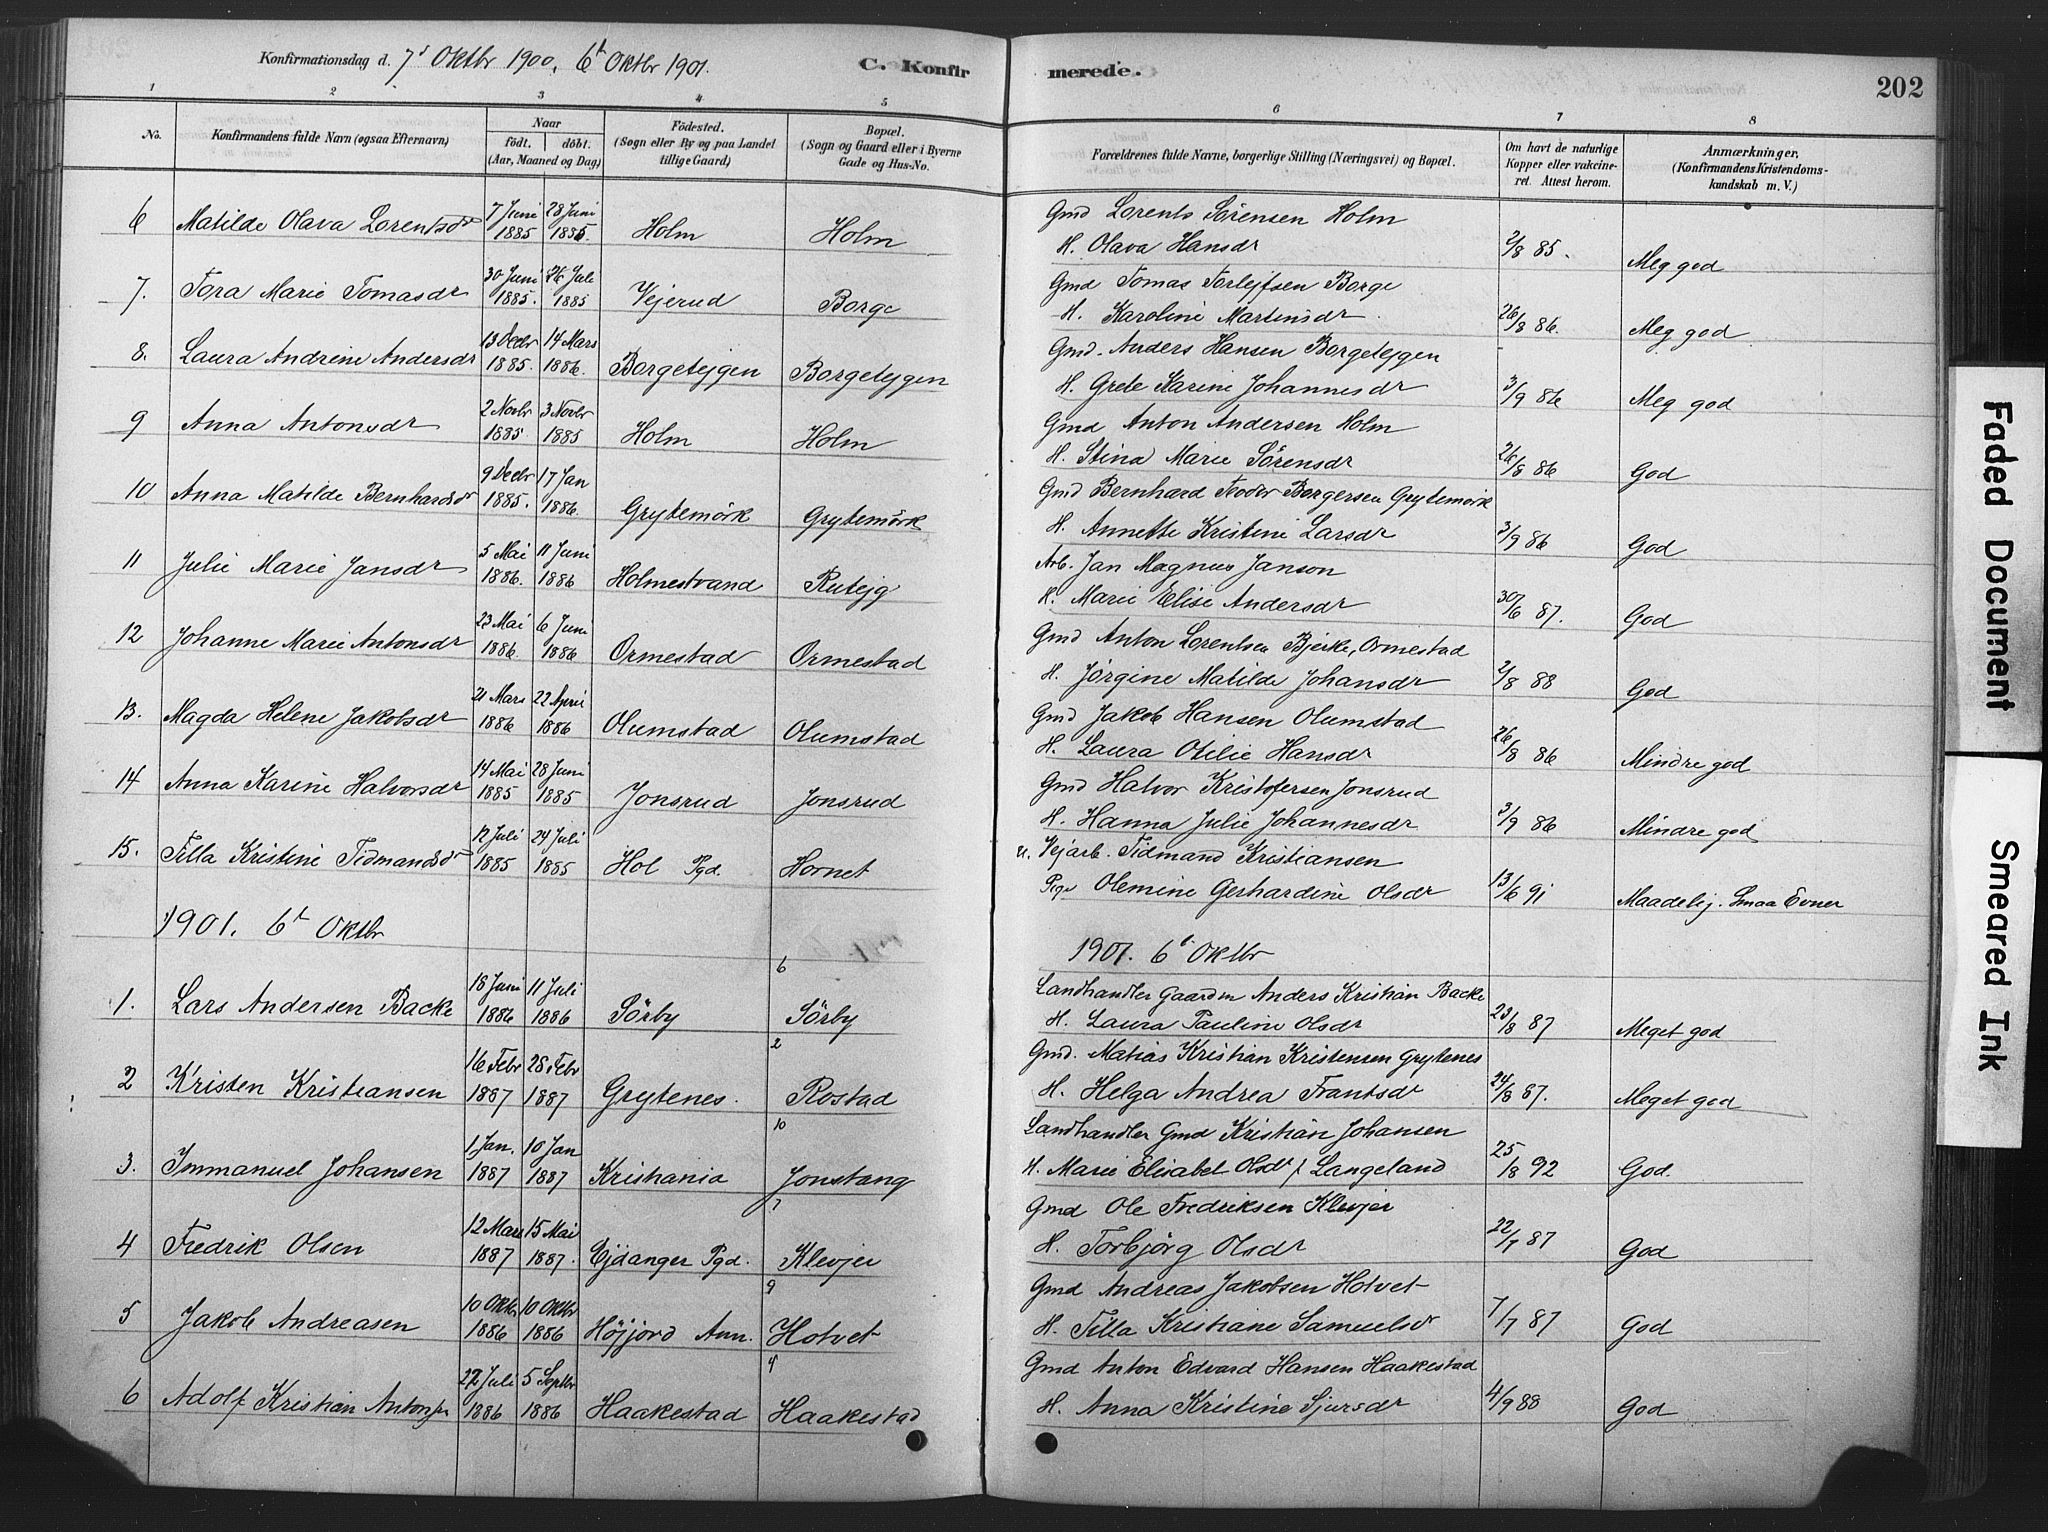 Konfirmationsdag d. 7d Oktbr 1900, 6t Oktbr 1901.
C. Konfirmerede.
202
1 2 3 4 5 6 7 8
No.
Konfirmandens fulde Navn (ogsaa Efternavn)
Naar
födt. döbt.
(Aar, Maaned og Dag)
Födested.
(Sogn eller By og paa Landet
tillige Gaard)
Bopæl.
(Sogn og Gaard eller i Byerne
Gade og Hus-No.
Forældrenes fulde Navne, borgerlige Stilling (Næringsvei) og Bopæl.
Om havt de naturlige
Kopper eller vakcine-
ret. Attest herom.
Anmærkninger.
(Konfirmandens Kristendoms-
kundskab m. V.)
6 Matilde Olava Lorentsdr 7 Juni 1885 28 Juni 1885. Holm Holm
Gmd Lorents Sörensen Holm
H. Olava Hansdr 2/8 85. Meg god
7. Tora Marie Tomasdr 30 Juni 1885. 26 Juli 1885 Vejerud Borge
Gmd Tomas Torlejfsen Borge
H. Karoline Martinsdr 26/8 86. Meg god
8. Laura Andrine Andersdr 13 Decbr 1885. 14 Mars 1886. Borgetejgen Borgetejgen
Gmd. Anders Hansen Borgetejgen
H. Grete Karine Johannesdr 3/9 86 Meg god
9 Anna Antonsdr 2 Novbr 1885 3 Novbr 1885 Holm Holm
Gmd Anton Andersen Holm
H. Stina Marie Sörensdr 26/8 86 God
10 Anna Matilde Bernhardsdr 9 Decbr 1885. 17 Jan 1886. Grytemörk Grytemörk
Gmd Bernhard Feodor Borgersen Grytemörk
H. Annette Kristine Larsdr 3/9 86 God
11 Julie Marie Jansdr 5 Mai 1886. 11 Juni 1886 Holmestrand Rutejg
Arb. Jan Magnus Janson
H. Marie Elise Andersdr 30/6 87. God
12 Johanne Marie Antonsdr 23 Mai 1886. 6 Juni 1886 Ormestad Ormestad
Gmd Anton Lorentsen Bjerke, Ormestad
H. Jörgine Matilde Johansdr 2/8 88 God
13. Magda Helene Jakobsdr 21 Mars 1886 22 April 1886 Olumstad Olumstad
Gmd Jakob Hansen Olumstad
H. Laura Otilie Hansdr 26/8 86 Mindre god
14 Anna Karine Halvorsdr 14 Mai 1885 28 Juni 1885 Jonsrud Jonsrud
Gmd Halvor Kristofersen Jonsrud
H. Hanna Julie Johannesdr 3/9 86 Mindre god
15. Tilla Kristine Tidmandsdr 12 Juli 1885 24 Juli 1885 Hol Pgd. Hornet
u. Vejarb. Tidmand Kristiansen
Pige Olemine Gerhardine Olsdr 13/6 91 Maadelig. Smaa Evner
1901. 6t Oktbr
1901. 6t Oktbr
1. Lars Andersen Backe 18 Juni 1886 11 Juli 1886 Sörby 6 Sörby
Landhandler Gaardm Anders Kristian Backe
H. Laura Pauline Olsdr 23/8 87 Meget god
2 Kristen Kristiansen 16 Febr 1887 28 Febr 1887 Grytenes. 2 Rostad
Gmd. Matias Kristian Kristensen Grytenes
H. Helga Andrea Frantsdr 24/8 87. Meget god
3. Immanuel Johansen 1 Jan. 1887 10 Jan 1887 Kristiania 10 Jonstang
Landhandler Gmd Kristian Johansen
H. Marie Elisabet Olsdr f Langeland 25/8 92 God.
4 Fredrik Olsen 12 Mars 1887 15 Mai 1887. Ejdanger Pgd. 7 Klevjer
Gmd Ole Fredriksen Klevjer
H. Torbjörg Olsdr 22/7 87 God
5 Jakob Andreasen 10 Oktbr 1886 10 Oktbr 1886 Höjjord Ann. 9 Hotvet
Gmd Andreas Jakobsen Hotvet
H. Tilla Kristiane Samuelsdr 7/7 87 God
6 Adolf Kristian Antonsen 22 Juli 1886 5 Septbr 1886 Haakestad 4 Haakestad
Gmd Anton Edvard Hansen Haakestad
H. Anna Kristine Sjursdr 4/9 88 God
Faded Document
Smeared Ink